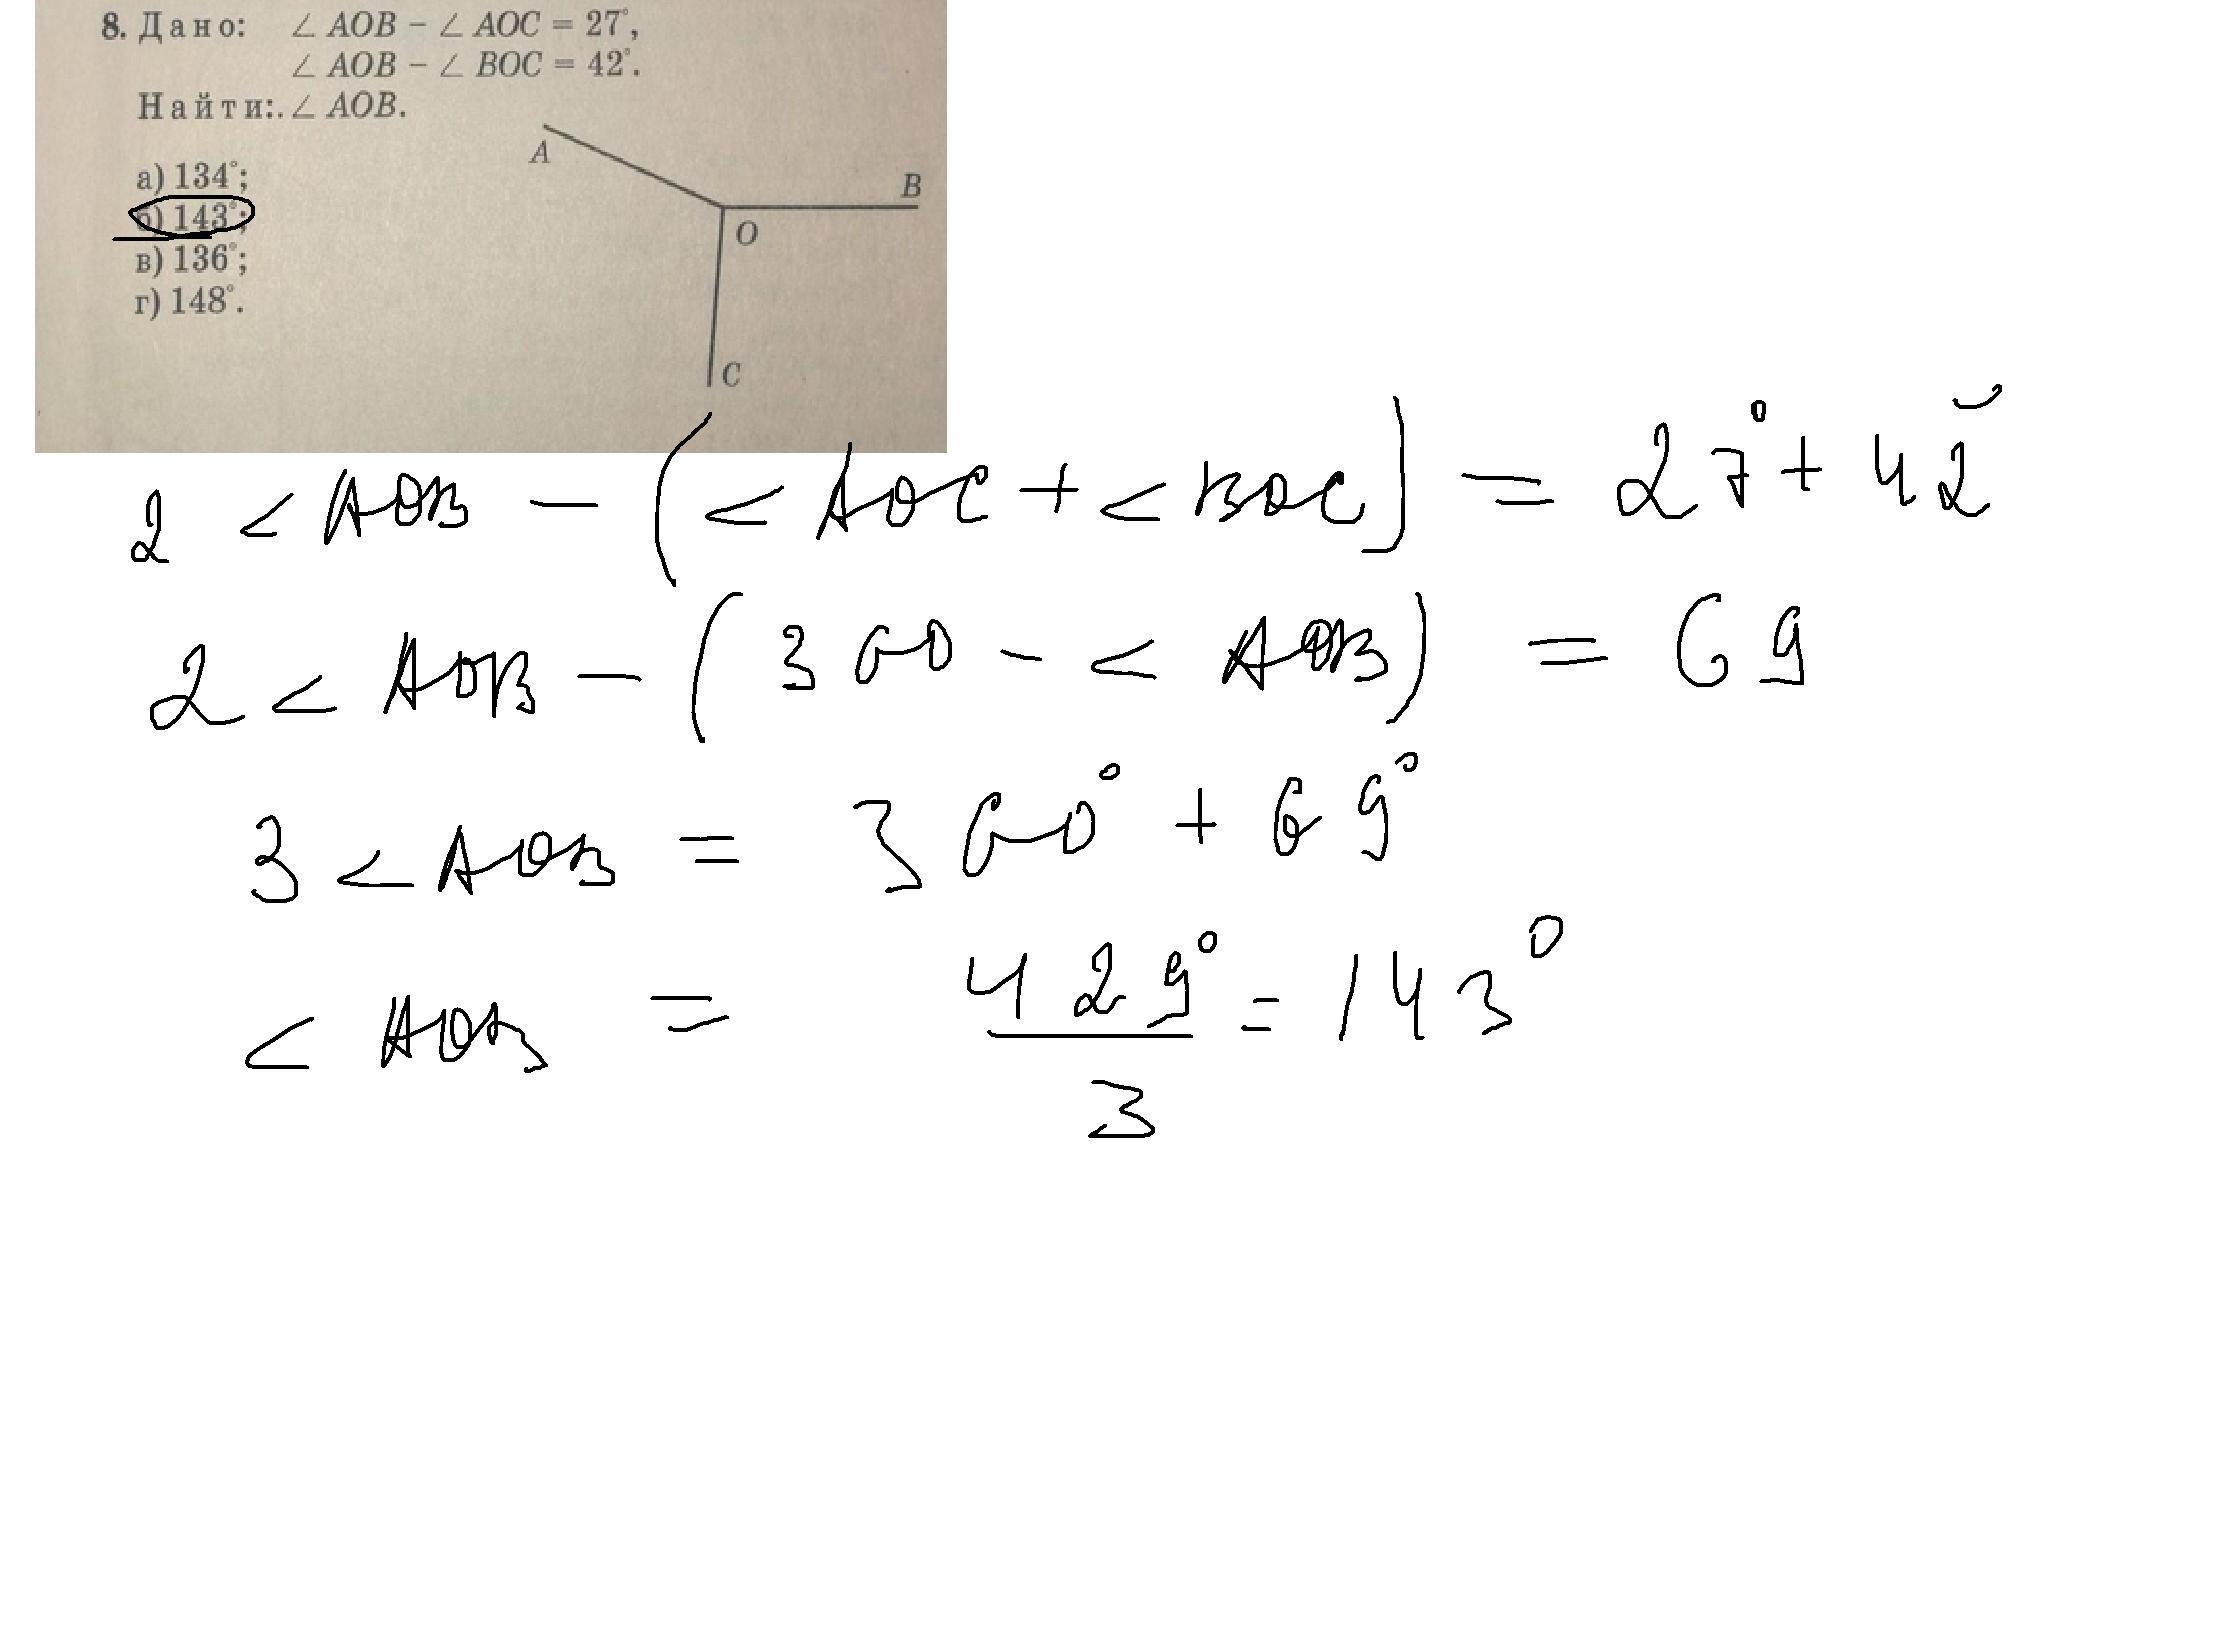 8. Дано: ∠ AOB − ∠ AOC = 27°,
∠ AOB − ∠ BOC = 42°.
Найти:. ∠ AOB.
а) 134°;
б) 143°;
в) 136°;
г) 148°.
A
B
O
C
2 < AOB − (< AOC + < BOC) = 27° + 42°
2 < AOB − (360 − < AOB) = 69
3 < AOB = 360° + 69°
< AOB = 429°/3 = 143°